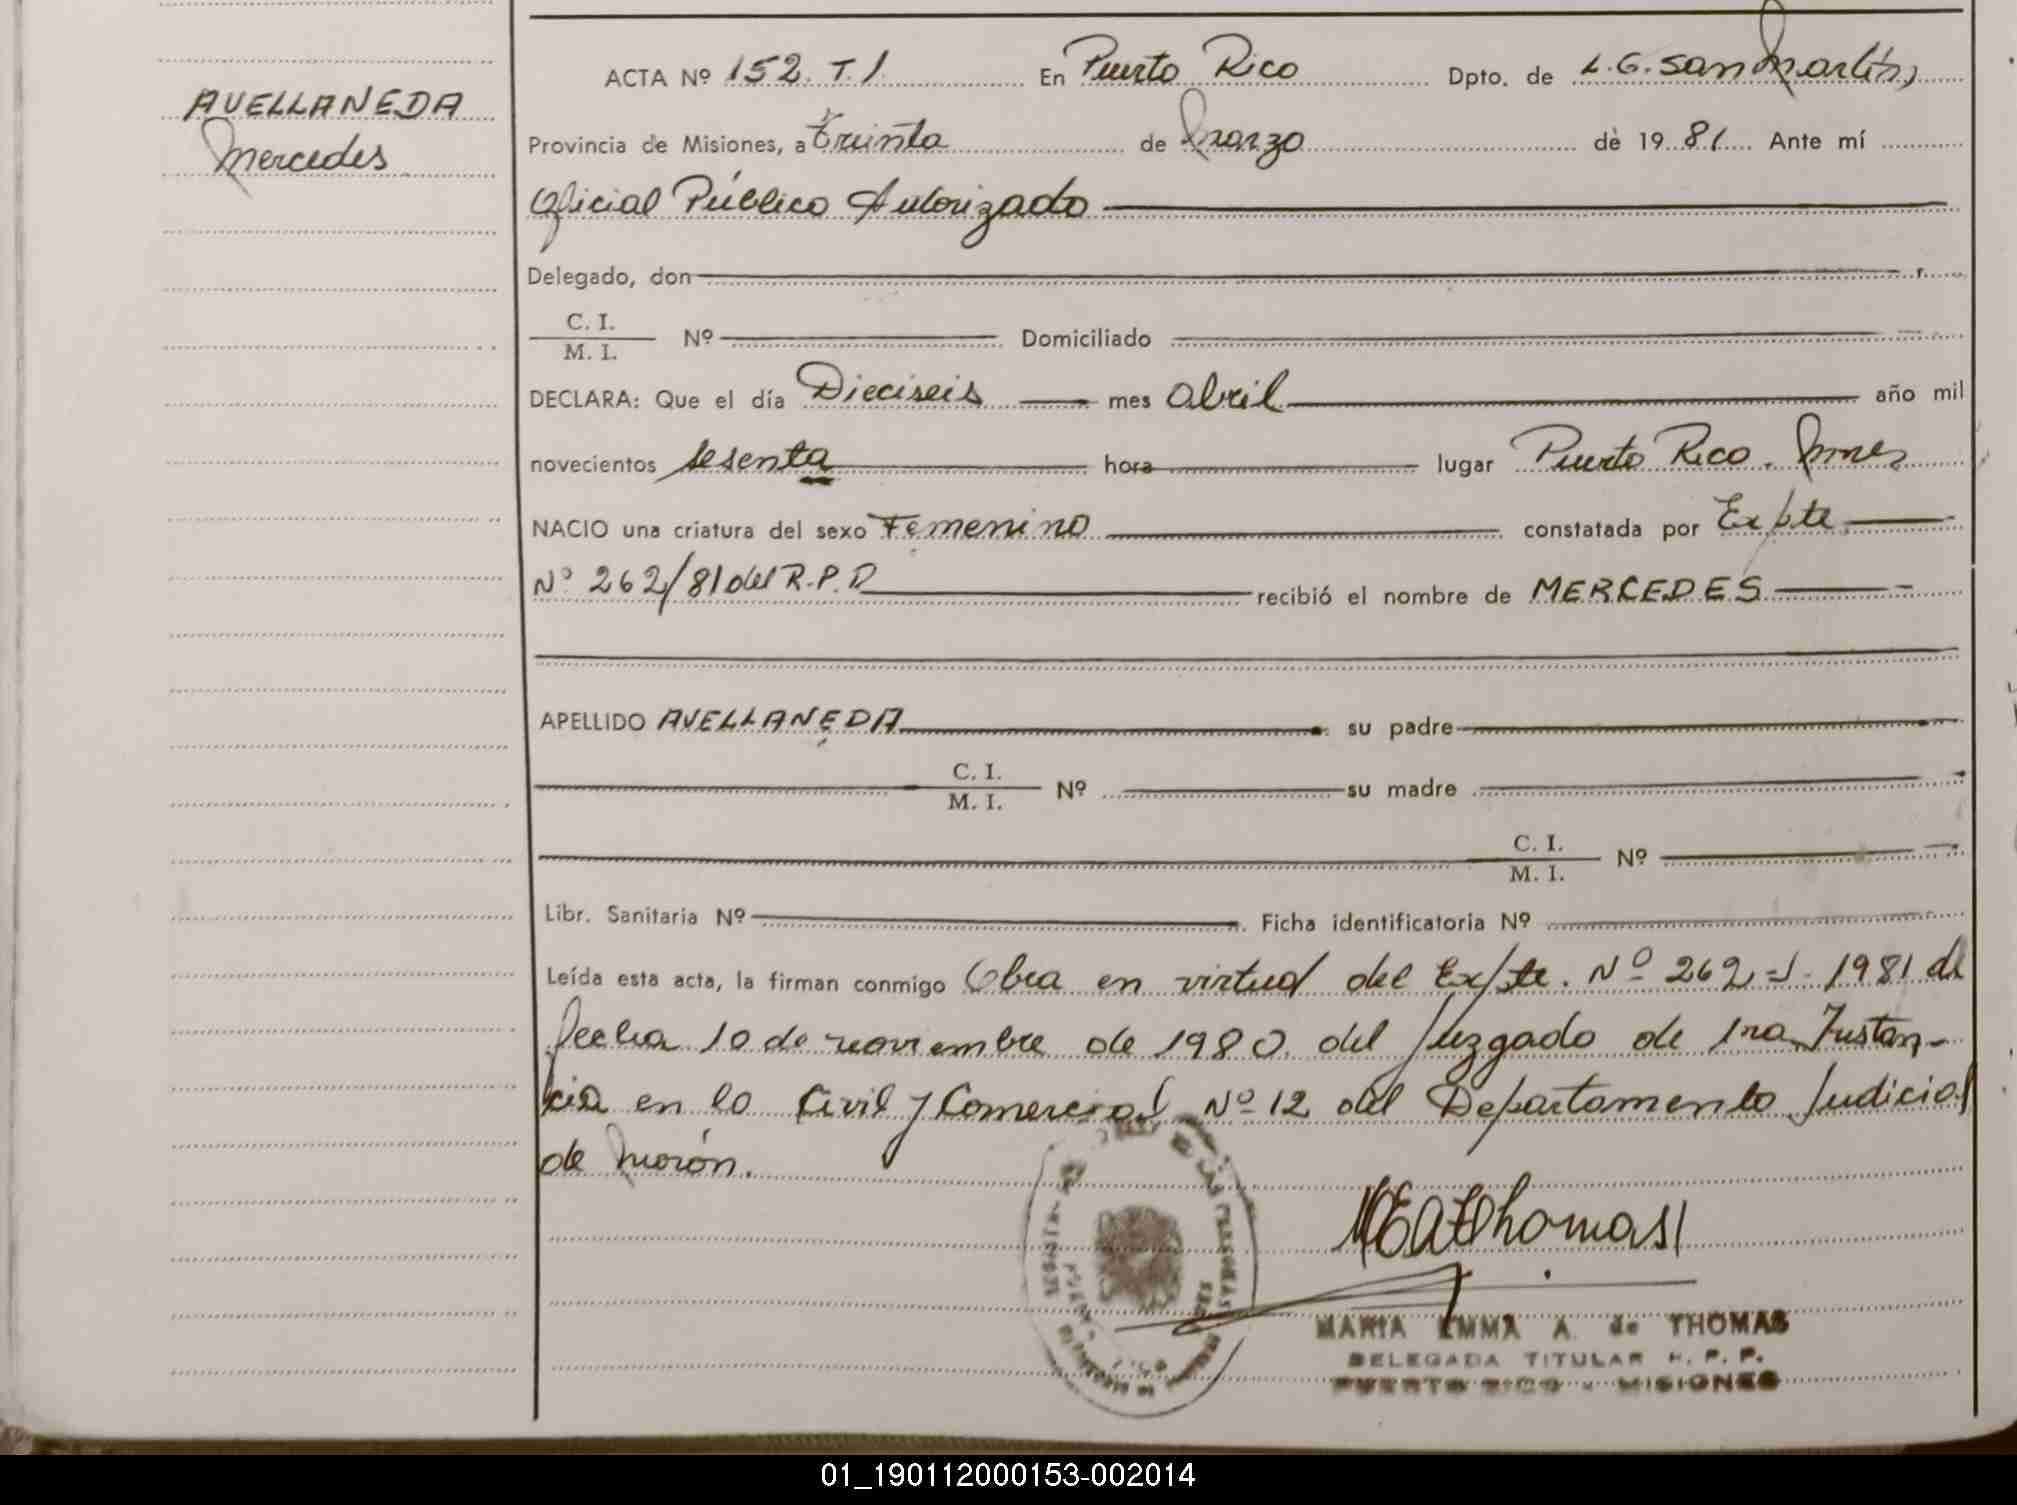 AVELLANEDA
Mercedes
ACTA Nº 152. T. I. En Puerto Rico Dpto. de L. G. San Martín,
Provincia de Misiones, a treinta de marzo de 19 81 Ante mí
Oficial Público Autorizado
Delegado, don
C. I.
M. I. Nº Domiciliado
DECLARA: Que el día Dieciseis mes abril año mil
novecientos sesenta hora lugar Puerto Rico. Mnes
NACIO una criatura del sexo Femenino constatada por Expte
Nº 262/81 del R.P.D recibió el nombre de MERCEDES
APELLIDO AVELLANEDA su padre
C. I.
M. I. Nº su madre
C. I.
M. I. Nº
Libr. Sanitaria Nº Ficha identificatoria Nº
Leída esta acta, la firman conmigo Obra en virtud del Expte. Nº 262 1981 de
fecha 10 de noviembre de 1980. del Juzgado de 1ra Instan-
cia en lo Civil y Comercial Nº 12 del Departamento Judicial
de Morón.
MEA de Thomas
MARIA EMMA A. de THOMAS
DELEGADA TITULAR R. P. P.
PUERTO RICO - MISIONES
01_190112000153-002014